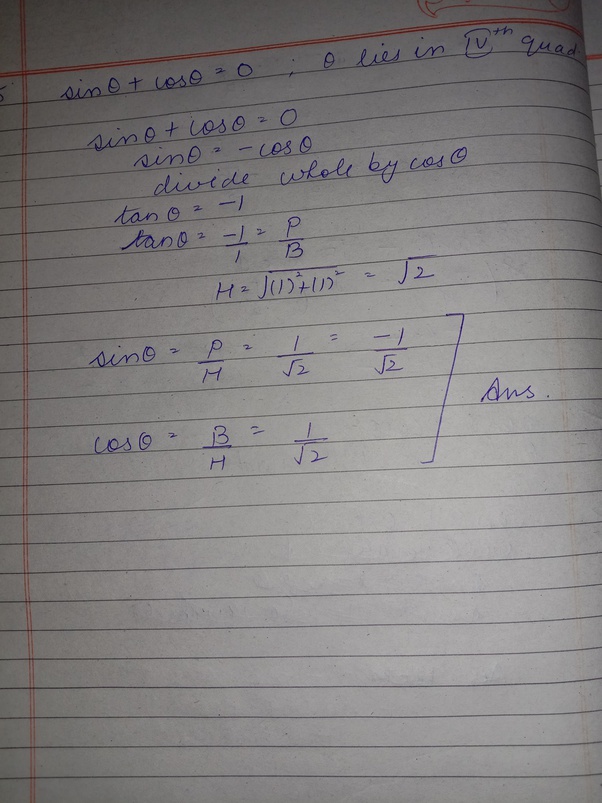 5 sinθ + cosθ = 0 ; θ lies in IVth quad
sinθ + cosθ = 0
sinθ = -cosθ
divide whole by cosθ
tanθ = -1
tanθ = -1/1 = P/B
H = √(1)²+(1)² = √2
sinθ = P/H = 1/√2 = -1/√2
Ans.
cosθ = B/H = 1/√2